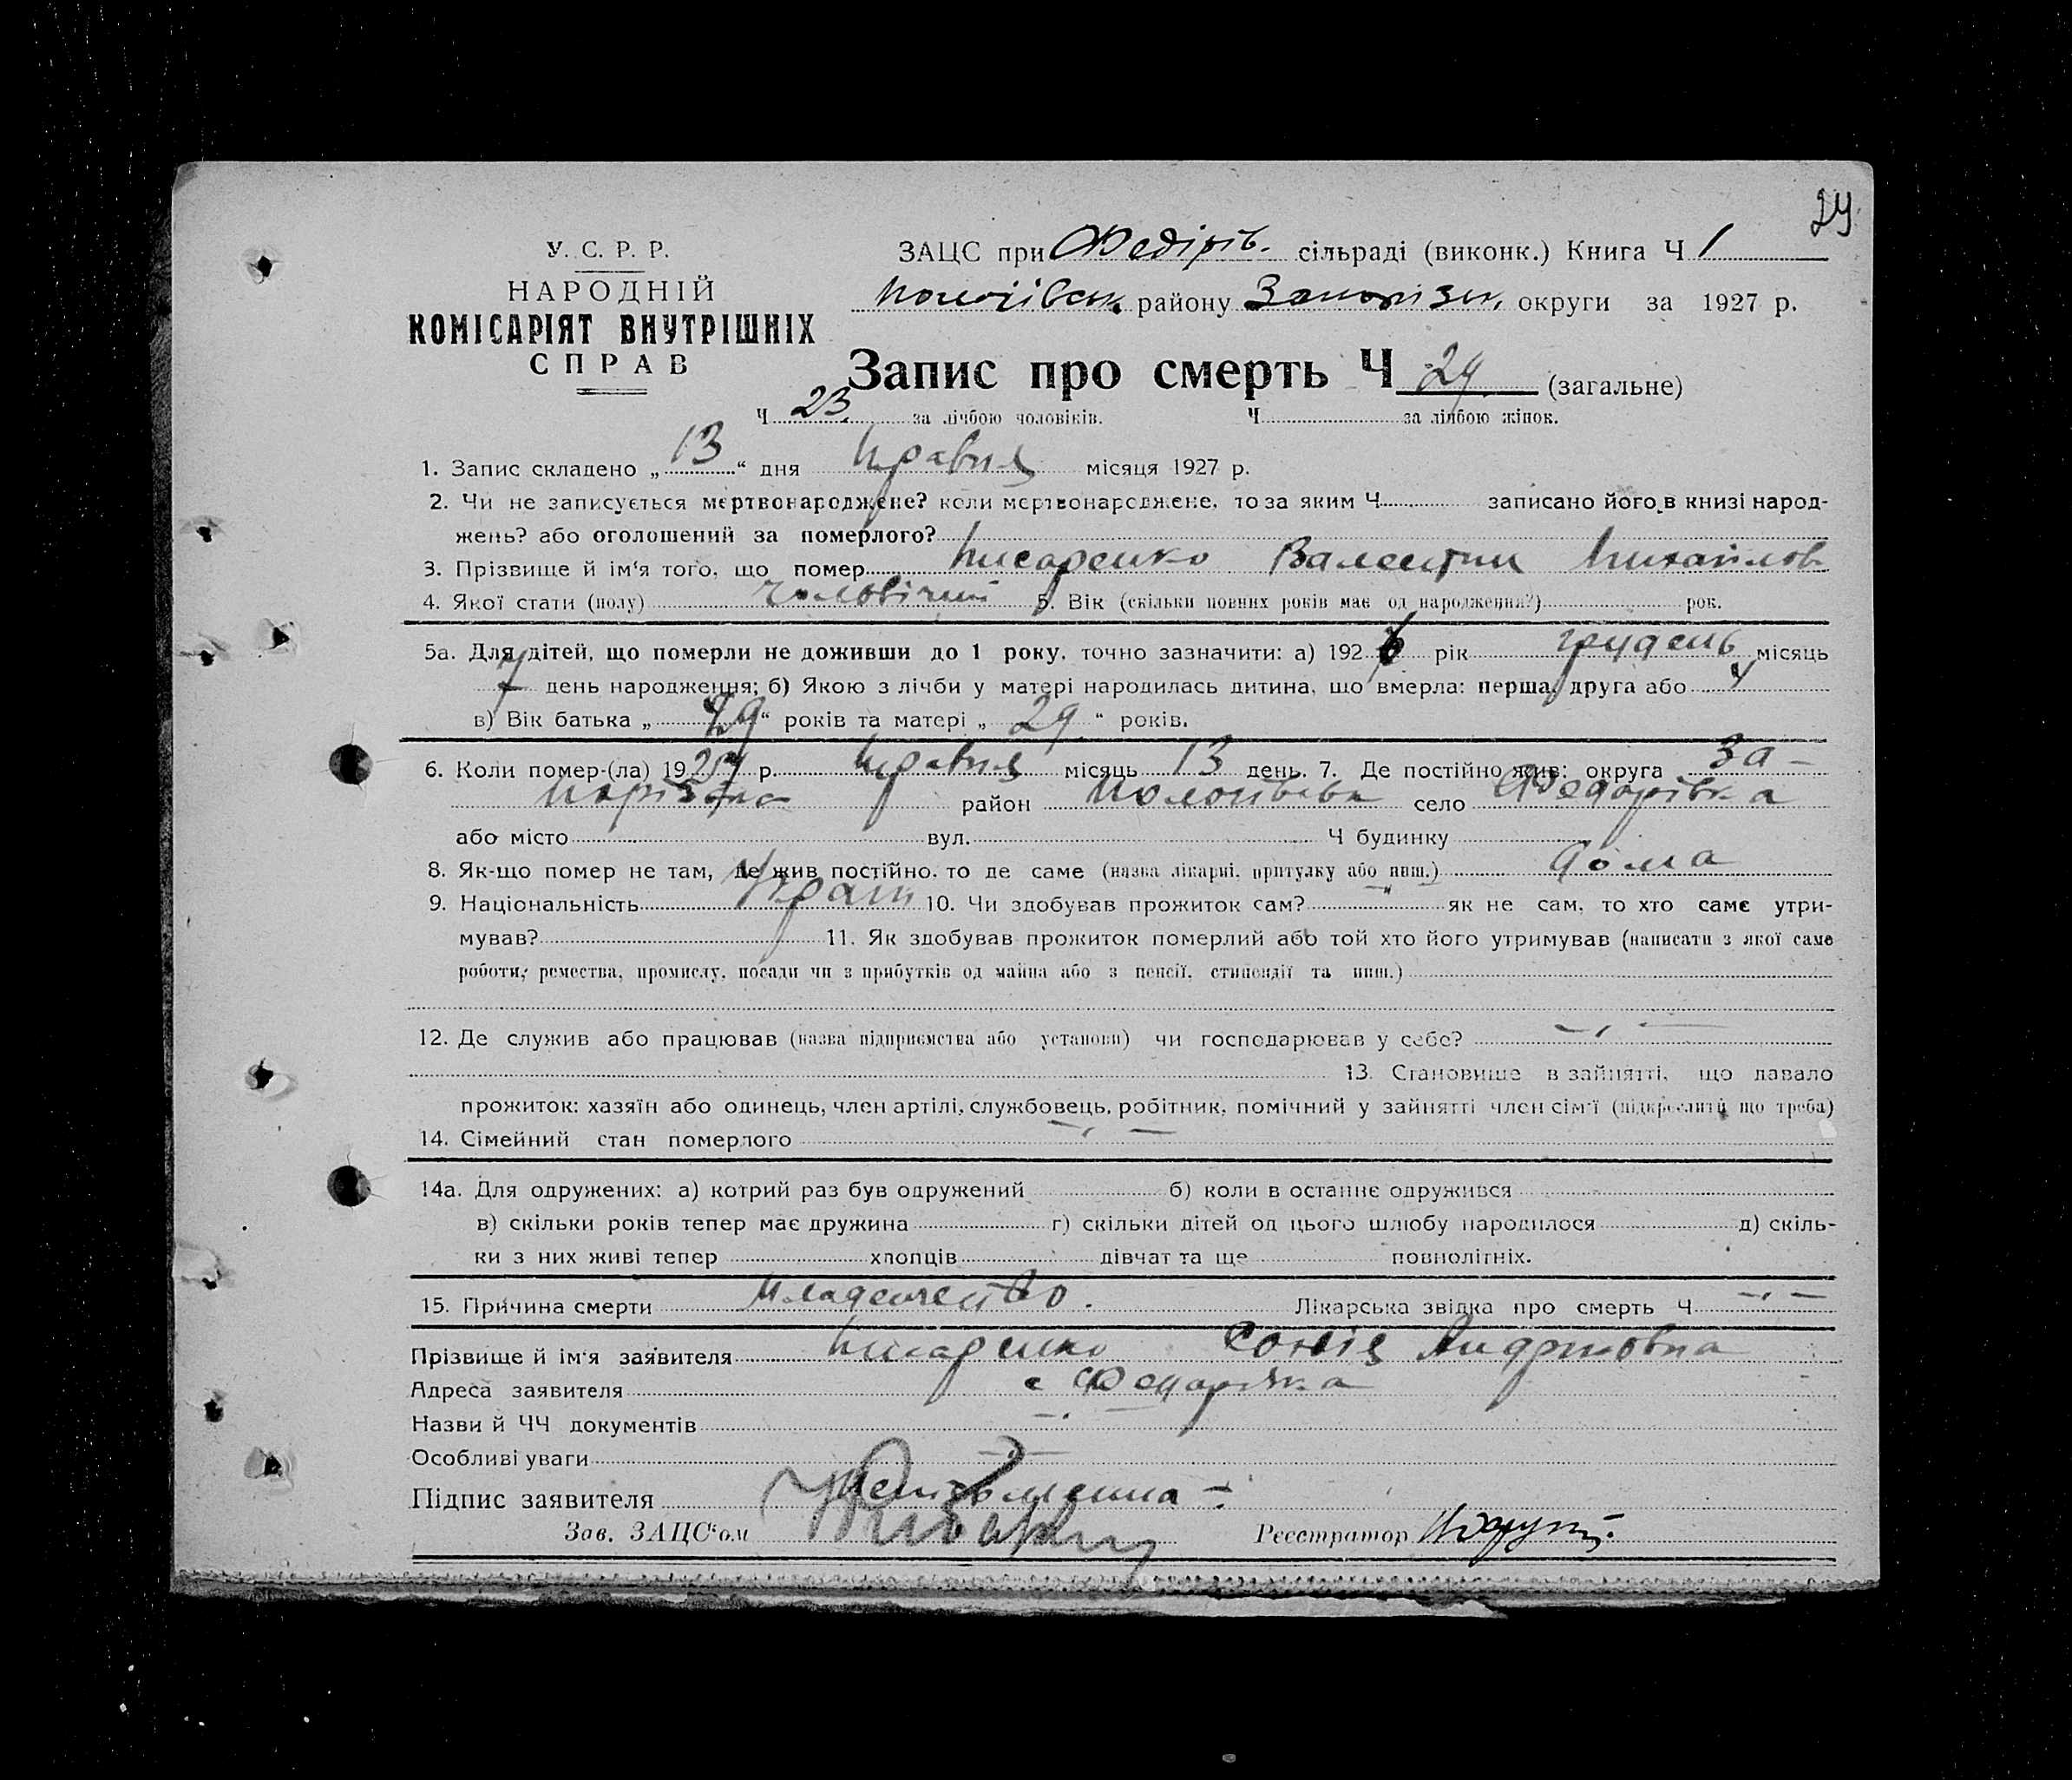 29
У. С. Р. Р.
НАРОДНІЙ
КОМІСАРІЯТ ВНУТРІШНІХ
СПРАВ
ЗАЦС при Федірів. сільраді (виконк.) Книга Ч 1
району Запоріз. округи за 1927 р.
Запис про смерть Ч 29 (загальне)
Ч 23 за лічбою чоловіків. Ч за лічбою жінок.
1. Запис складено „ 13 “ дня травня місяця 1927 р.
2. Чи не записується мертвонароджене? коли мертвонароджене, то за яким Ч записано його в книзі народ-
жень? або оголошений за померлого?
3. Прізвище й ім'я того, що помер Писаренко Валентин Михайлов
4. Якої стати (полу) чоловічий 5. Вік (скільки повних років має од народження?) рок.
5а. Для дітей, що померли не доживши до 1 року, точно зазначити: а) 1926 рік грудень місяць
7 день народження; б) Якою з лічби у матері народилась дитина, що вмерла: перша, друга або 4
в) Вік батька „ 29 “ років та матері „ 29 “ років.
6. Коли помер-(ла) 1927 р. травня місяць 13 день. 7. Де постійно жив: округа За-
порізька район Пологівськ село Федорівка
або місто вул. Ч будинку
8. Як-що помер не там, де жив постійно, то де саме (назва лікарні, притулку або инш.) дома
9. Національність Украін 10. Чи здобував прожиток сам? — „ — як не сам, то хто саме утри-
мував? 11. Як здобував прожиток померлий або той хто його утримував (написати з якої саме
роботи, ремества, промислу, посади чи з прибутків од майна або з пенсії, стипендії та инш.)
12. Де служив або працював (назва підприємства або установи) чи господарював у себе? — „ —
13. Становище в зайнятті, що давало
прожиток: хазяїн або одинець, член артілі, службовець, робітник, помічний у зайнятті член сім'ї (підкреслити що треба)
14. Сімейний стан померлого — „ —
14а. Для одружених: а) котрий раз був одружений б) коли в останнє одружився
в) скільки років тепер має дружина г) скільки дітей од цього шлюбу народилося д) скіль-
ки з них живі тепер хлопців дівчат та ще повнолітніх.
15. Причина смерти Младенчество. Лікарська звідка про смерть Ч — „ —
Прізвище й ім'я заявителя Писаренко Софія Андриковна
Адреса заявителя с Федорівка
Назви й ЧЧ документів — „ —
Особливі уваги — „ —
Підпис заявителя Неписьменна
Зав. ЗАЦС'ом Реєстратор